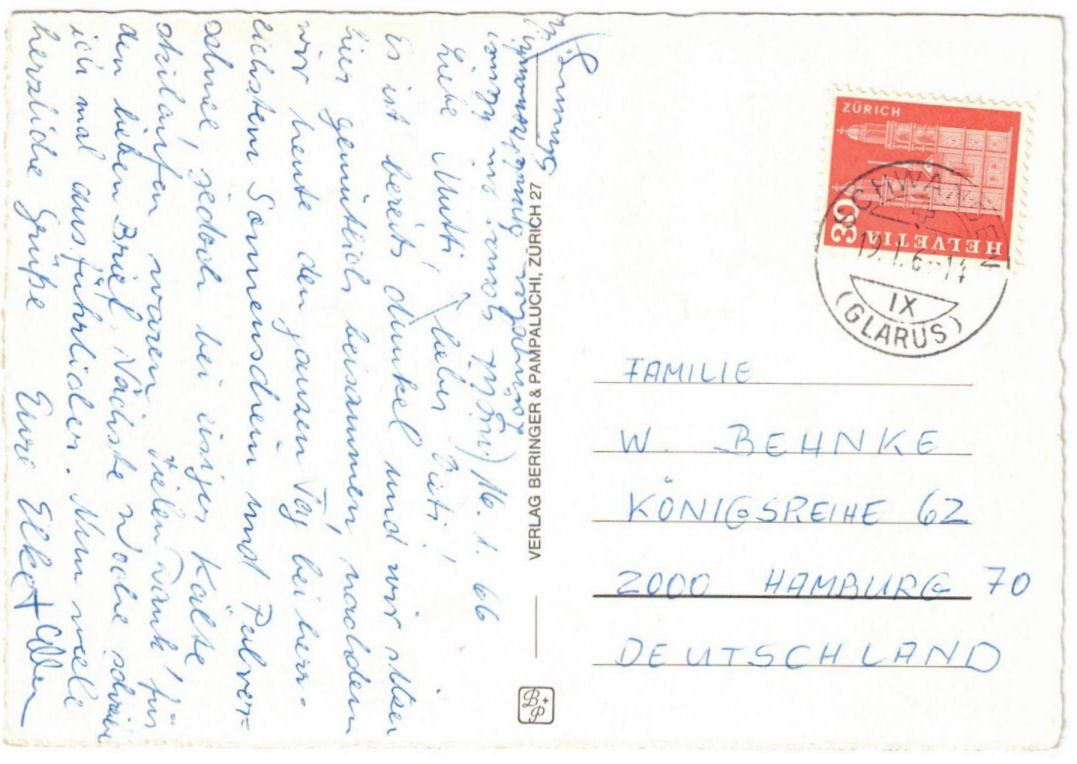 Mörn) 16. 1. 66
Liebe Mutti, lieber Vati!
Es ist bereits dunkel und wir sitzen
hier gemütlich beisammen, nachdem
wir heute den ganzen Tag bei herr-
lichstem Sonnenschein und Pulver-
schnee, jedoch bei einiger Kälte
skilaufen waren. Vielen Dank für
den lieben Brief. Nächste Woche schreibe
ich mal ausführlicher. Nun viele
herzliche Grüße Eure Elke +
VERLAG BERINGER & PAMPALUCHI, ZÜRICH 27
B+P
ZÜRICH
30
HELVETIA
SCHWANDEN
19.1.6 -14
IX
(GLARUS)
FAMILIE
W. BEHNKE
KÖNIGSREIHE 62
2000 HAMBURG 70
DEUTSCHLAND